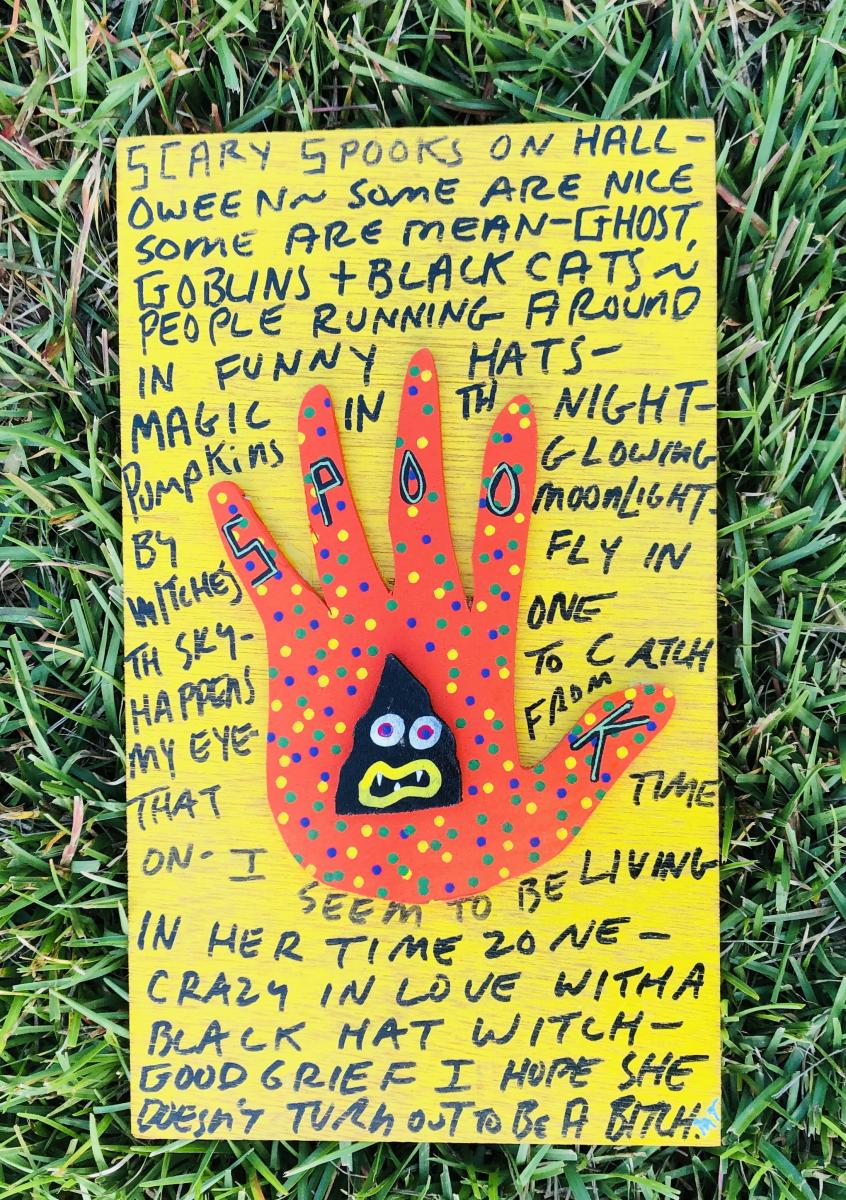 SCARY SPOOKS ON HALL-
OWEEN~ SOME ARE NICE
SOME ARE MEAN-GHOST,
GOBLINS + BLACK CATS~
PEOPLE RUNNING AROUND
IN FUNNY HATS-
MAGIC IN TH NIGHT-
PUMPKINS GLOWING
BY MOONLIGHT-
WITCHES FLY IN
TH SKY- ONE
HAPPENS TO CATCH
MY EYE- FROM
THAT TIME
ON- I SEEM TO BE LIVING
IN HER TIME ZONE-
CRAZY IN LOVE WITH A
BLACK HAT WITCH-
GOOD GRIEF I HOPE SHE
DOESN'T TURN OUT TO BE A BITCH.
MT
SPOOK